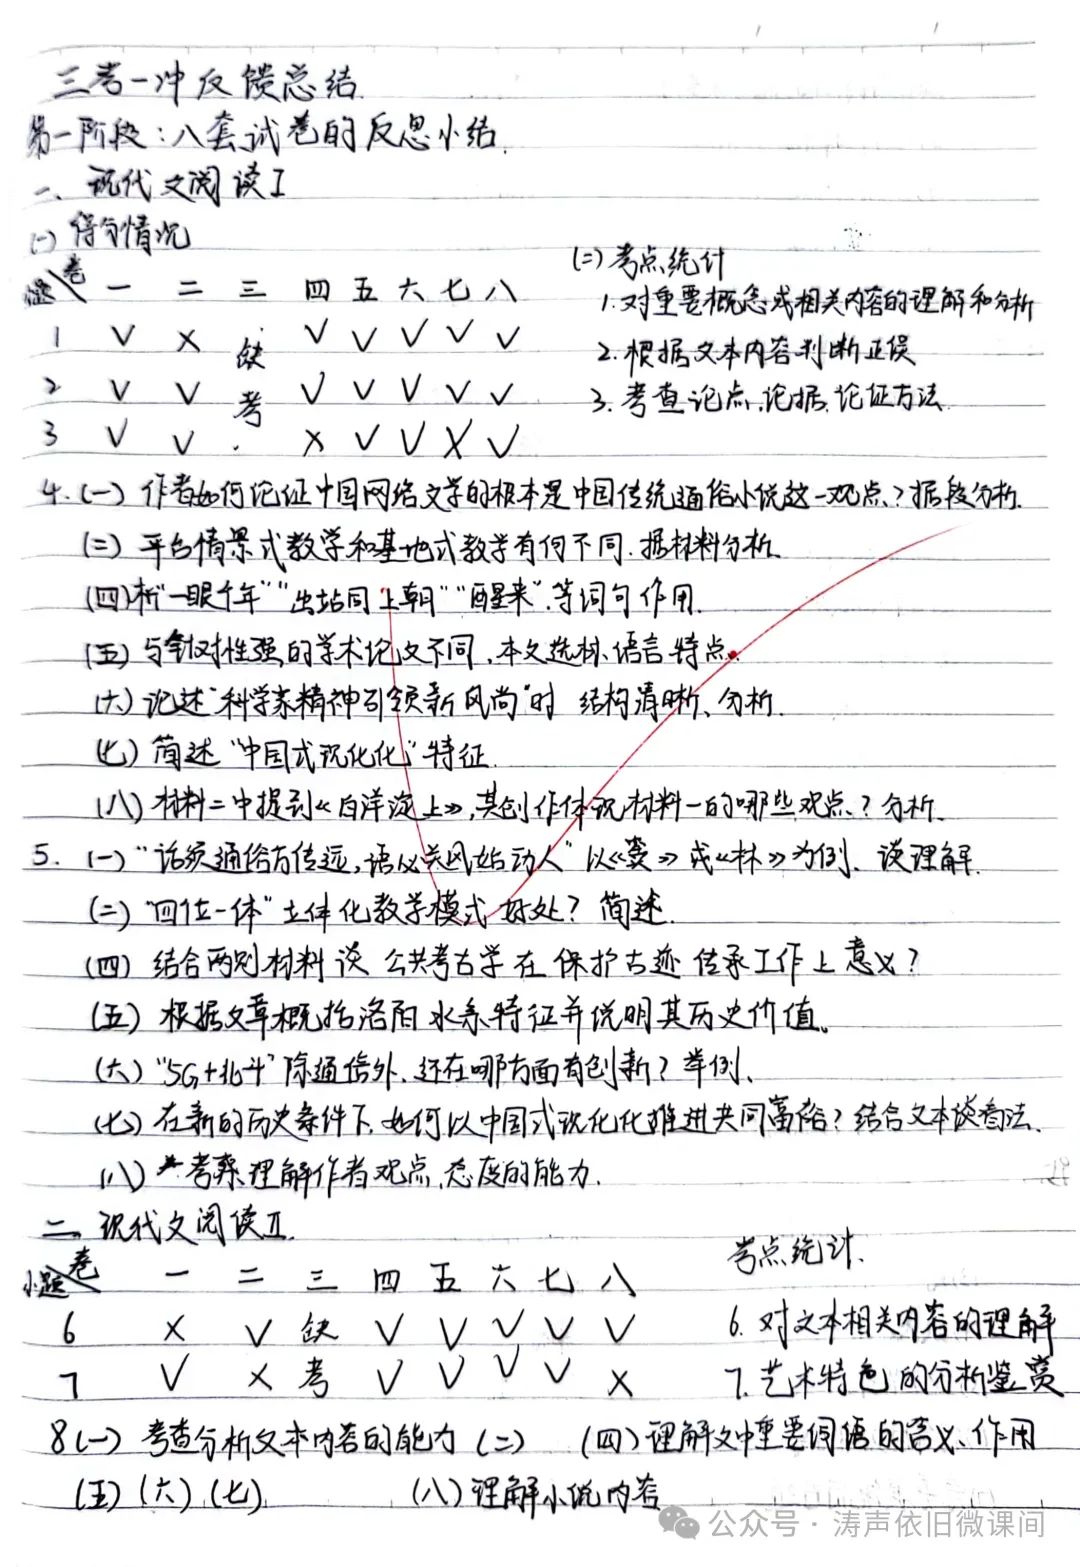 三考一冲反馈总结.
第一阶段：八套试卷的反思小结.
一、现代文阅读I
(一)得分情况
(二)考点统计
小题 卷 一 二 三 四 五 六 七 八
1.对重要概念或相关内容的理解和分析
1 √ × 缺 √ √ √ √ √
2.根据文本内容判断正误
2 √ √ 考 √ √ √ √ √
3.考查论点、论据、论证方法.
3 √ √ × √ √ × √
4.(一)作者如何论证中国网络文学的根本是中国传统通俗小说这一观点？据段分析.
(二)平台情景式教学和基地式教学有何不同.据材料分析.
(四)析"一眼千年""出站同上朝""醒来"等词句作用.
(五)与针对性强的学术论文不同,本文选材、语言特点.
(六)论述"科学家精神引领新风尚"时 结构清晰、分析.
(七)简述"中国式现化化"特征.
(八)材料二中提到《白洋淀上》,其创作体现材料一的哪些观点？分析.
5.(一)"话须通俗方传远,语必关风始动人"以《蛮》或《林》为例、谈理解.
(二)"四位一体"立体化教学模式好处？简述.
(四)结合两则材料谈公共考古学在保护古迹传承工作上意义？
(五)根据文章概括洛阳水系特征并说明其历史价值。
(六)"5G+北斗"除通信外、还在哪方面有创新？举例、
(七)在新的历史条件下,如何以中国式现化化推进共同富裕？结合文本谈看法、
(八)*考察理解作者观点、态度的能力.
二、现代文阅读II
考点统计.
小题 卷 一 二 三 四 五 六 七 八
6 × √ 缺 √ √ √ √ √
6.对文本相关内容的理解
7 √ × 考 √ √ √ √ ×
7.艺术特色的分析鉴赏
8(一)考查分析文本内容的能力(二) (四)理解文中重要词语的含义、作用
(五)(六)(七) (八)理解小说内容
公众号·涛声依旧微课间